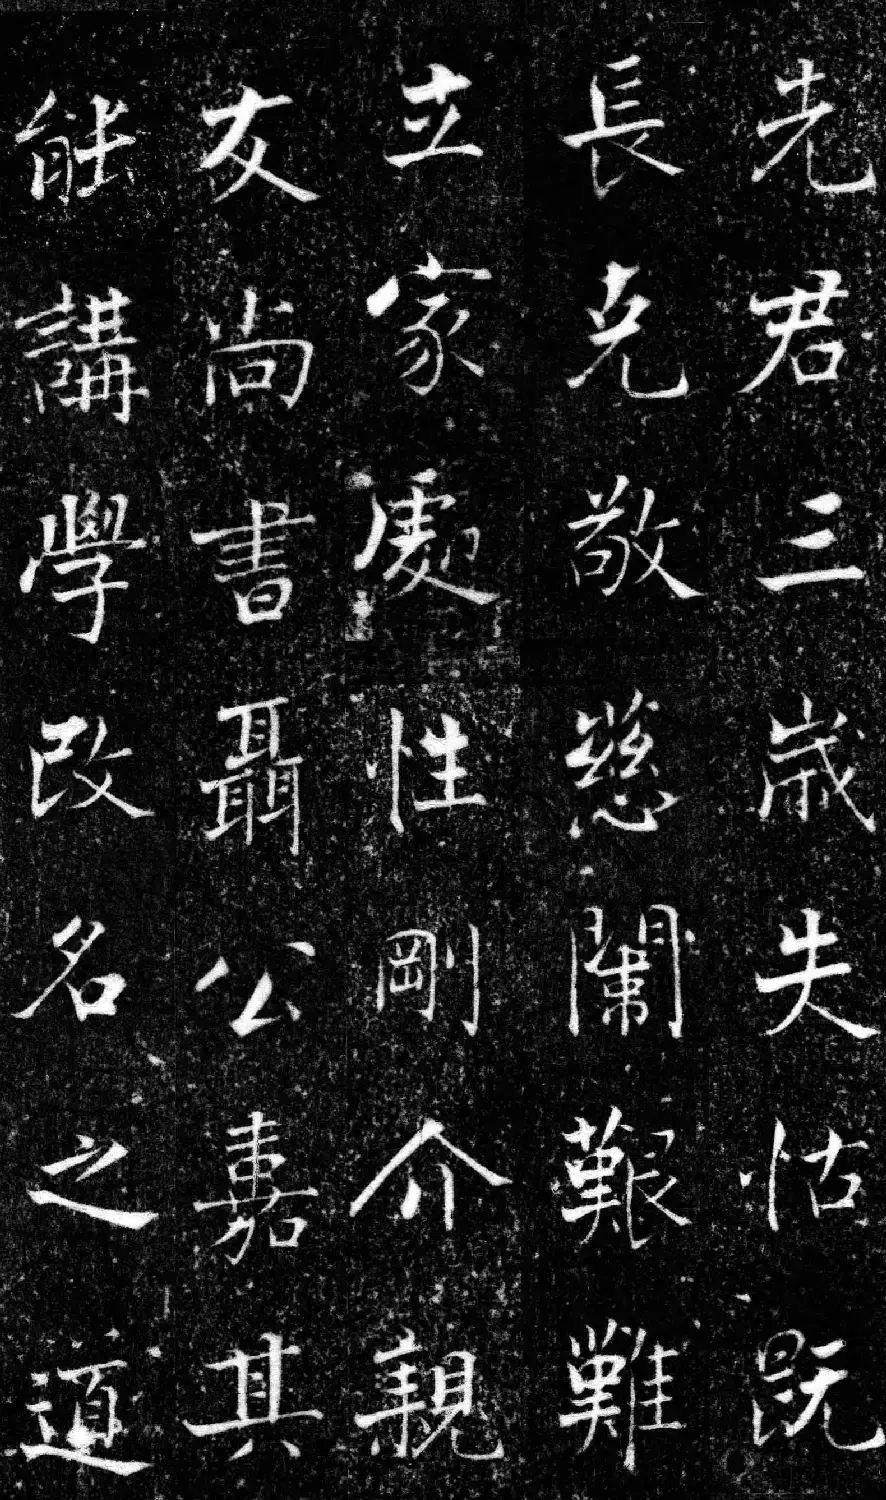 先君三歳失怙既
長克敬慈闈艱難
立家處性剛介親
友尚書聶公嘉其
能講學改名之道